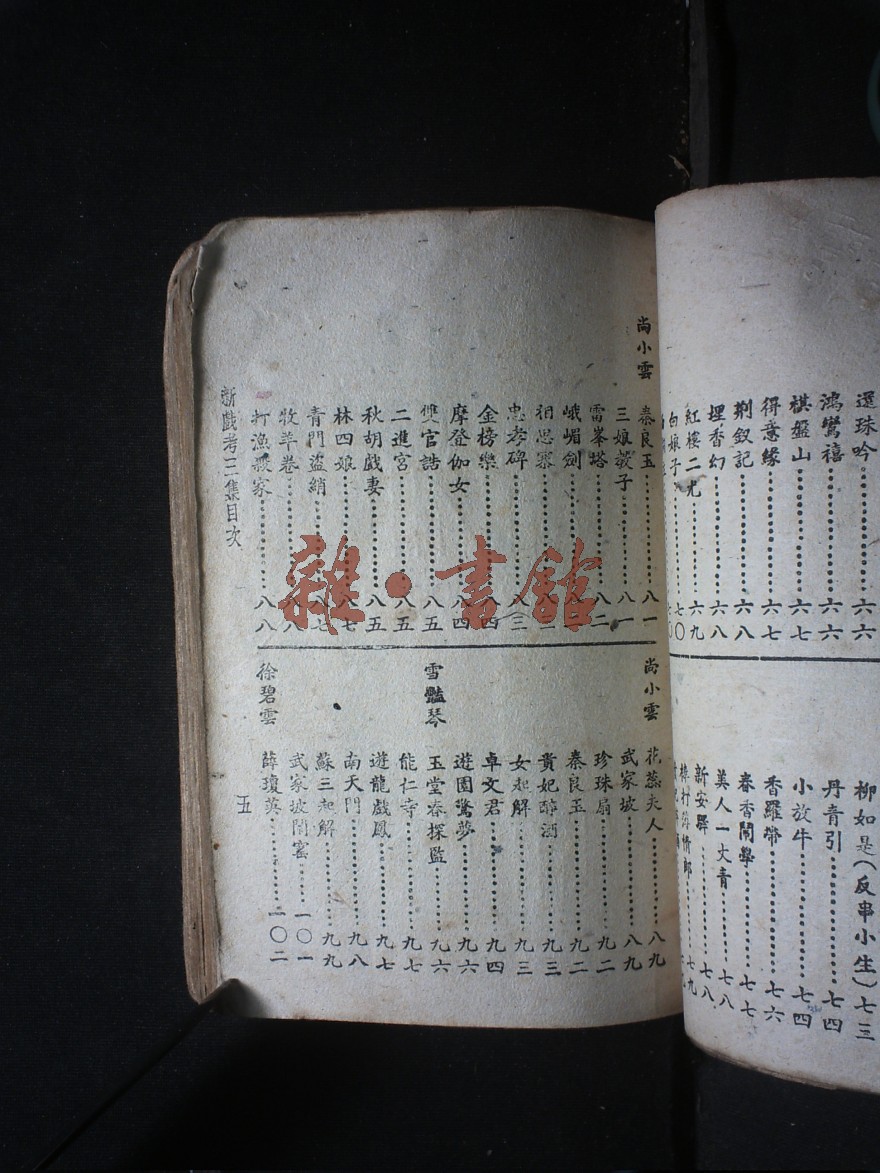 選珠吟 六六
鴻鸞禧 六六
棋盤山 六七
得意緣 六七
荆釵記 六八
埋香幻 六八
紅樓二尤 六九
白娘子 七〇
柳如是(反串小生) 七三
丹青引 七四
小放牛 七四
香羅帶 七六
春香鬧學 七七
美人一丈青 七八
新安驛 七八
尚小雲
秦良玉 八一
三娘教子 八一
雷峯塔 八二
峨嵋劍
相思寨
忠孝碑 八三
金榜樂 八四
摩登伽女 八四
雙官誥 八五
二進宮 八五
秋胡戲妻 八五
林四娘 八七
青門盜綃 八七
牧羊卷 八八
打漁殺家 八八
尚小雲
花蕊夫人 八九
武家坡 八九
珍珠扇 九二
秦良玉 九二
貴妃醉酒 九三
女起解 九三
卓文君 九四
雪豔琴
遊園驚夢 九六
玉堂春探監 九六
能仁寺 九七
遊龍戲鳳 九七
南天門 九八
蘇三起解 九九
武家坡鬧窰 一〇一
徐碧雲
薛瓊英 一〇二
新戲考三集目次
五
雜·書館